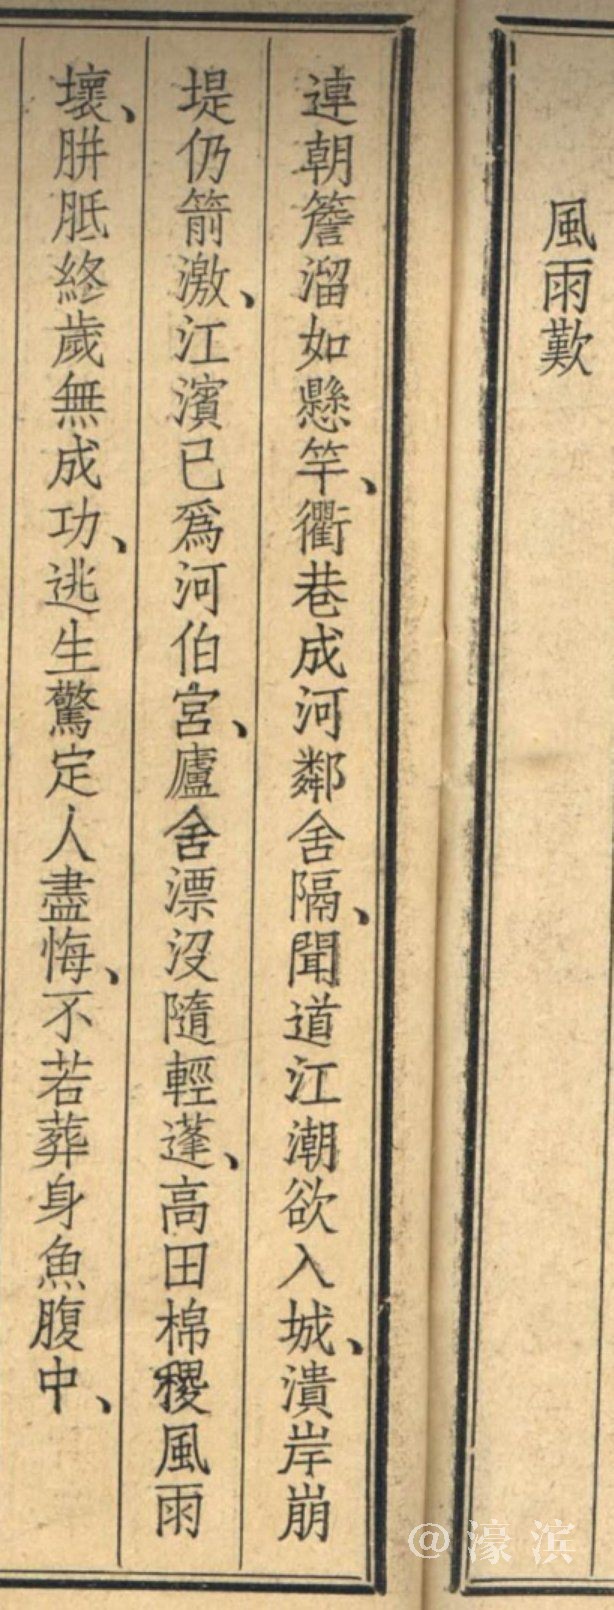 風雨歎
連朝簷溜如懸竿、衢巷成河鄰舍隔、聞道江潮欲入城、潰岸崩
堤仍箭激、江濱已爲河伯宮、廬舍漂沒隨輕蓬、高田棉稷風雨
壞、胼胝終歲無成功、逃生驚定人盡悔、不若葬身魚腹中、
@濠滨